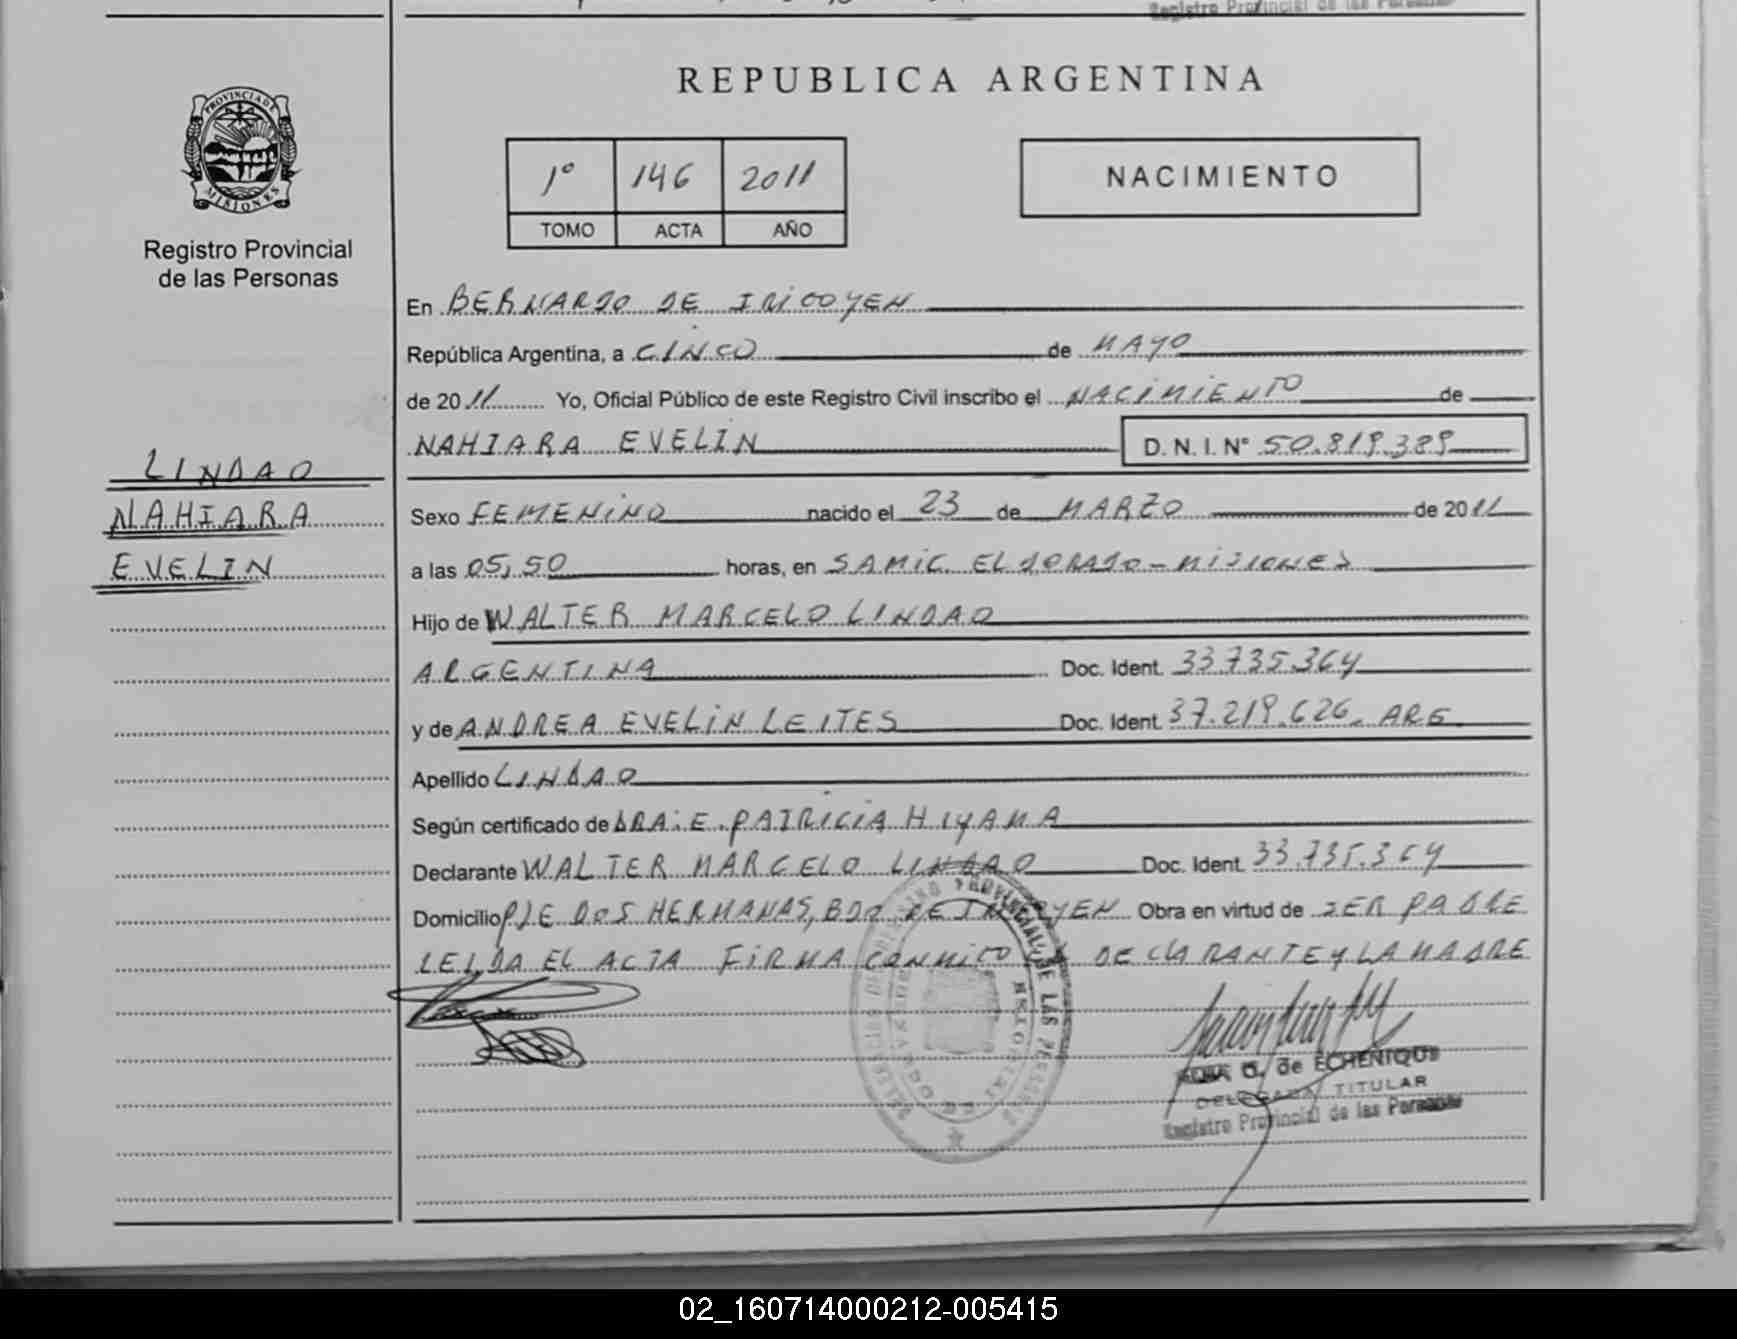 Registro Provincial de las Personas
REPUBLICA ARGENTINA
PROVINCIA DE
MISIONES
Registro Provincial
de las Personas
1° 146 2011
TOMO ACTA AÑO
NACIMIENTO
En BERNARDO DE IRIGOYEN
República Argentina, a CINCO de MAYO
de 2011 Yo, Oficial Público de este Registro Civil inscribo el NACIMIENTO de
NAHIARA EVELIN D. N. I. N° 50.819.389
LINDAO
NAHIARA
EVELIN
Sexo FEMENINO nacido el 23 de MARZO de 2011
a las 05,50 horas, en SAMIC. ELDORADO - MISIONES
Hijo de WALTER MARCELO LINDAO
ARGENTINA Doc. Ident. 33.735.364
y de ANDREA EVELIN LEITES Doc. Ident. 37.219.626. ARG
Apellido LINDAO
Según certificado de DRA: E. PATRICIA HIYAMA
Declarante WALTER MARCELO LINDAO Doc. Ident. 33.735.364
Domicilio PJE DOS HERMANAS, BDO DE IRIGOYEN Obra en virtud de SER PADRE
LEIDA EL ACTA FIRMA CONMIGO EL DECLARANTE Y LA MADRE
G. de ECHENIQUE
DELEGADA TITULAR
Registro Provincial de las Personas
02_160714000212-005415